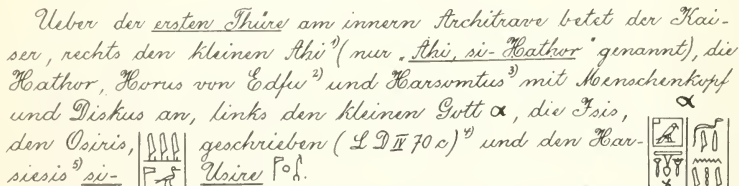 Ueber der ersten Thüre am innern Architrave betet der Kai-
ser, rechts den kleinen Ahi ¹⁾ (nur „Ahi, si-Hathor" genannt), die
Hathor, Horus von Edfu ²⁾ und Harsomtus ³⁾ mit Menschenkopf
und Diskus an, links den kleinen Gott α, die Isis,
den Osiris, geschrieben (LD IV 70 c) ⁴⁾ und den Har-
siesis ⁵⁾ si- Usire
α